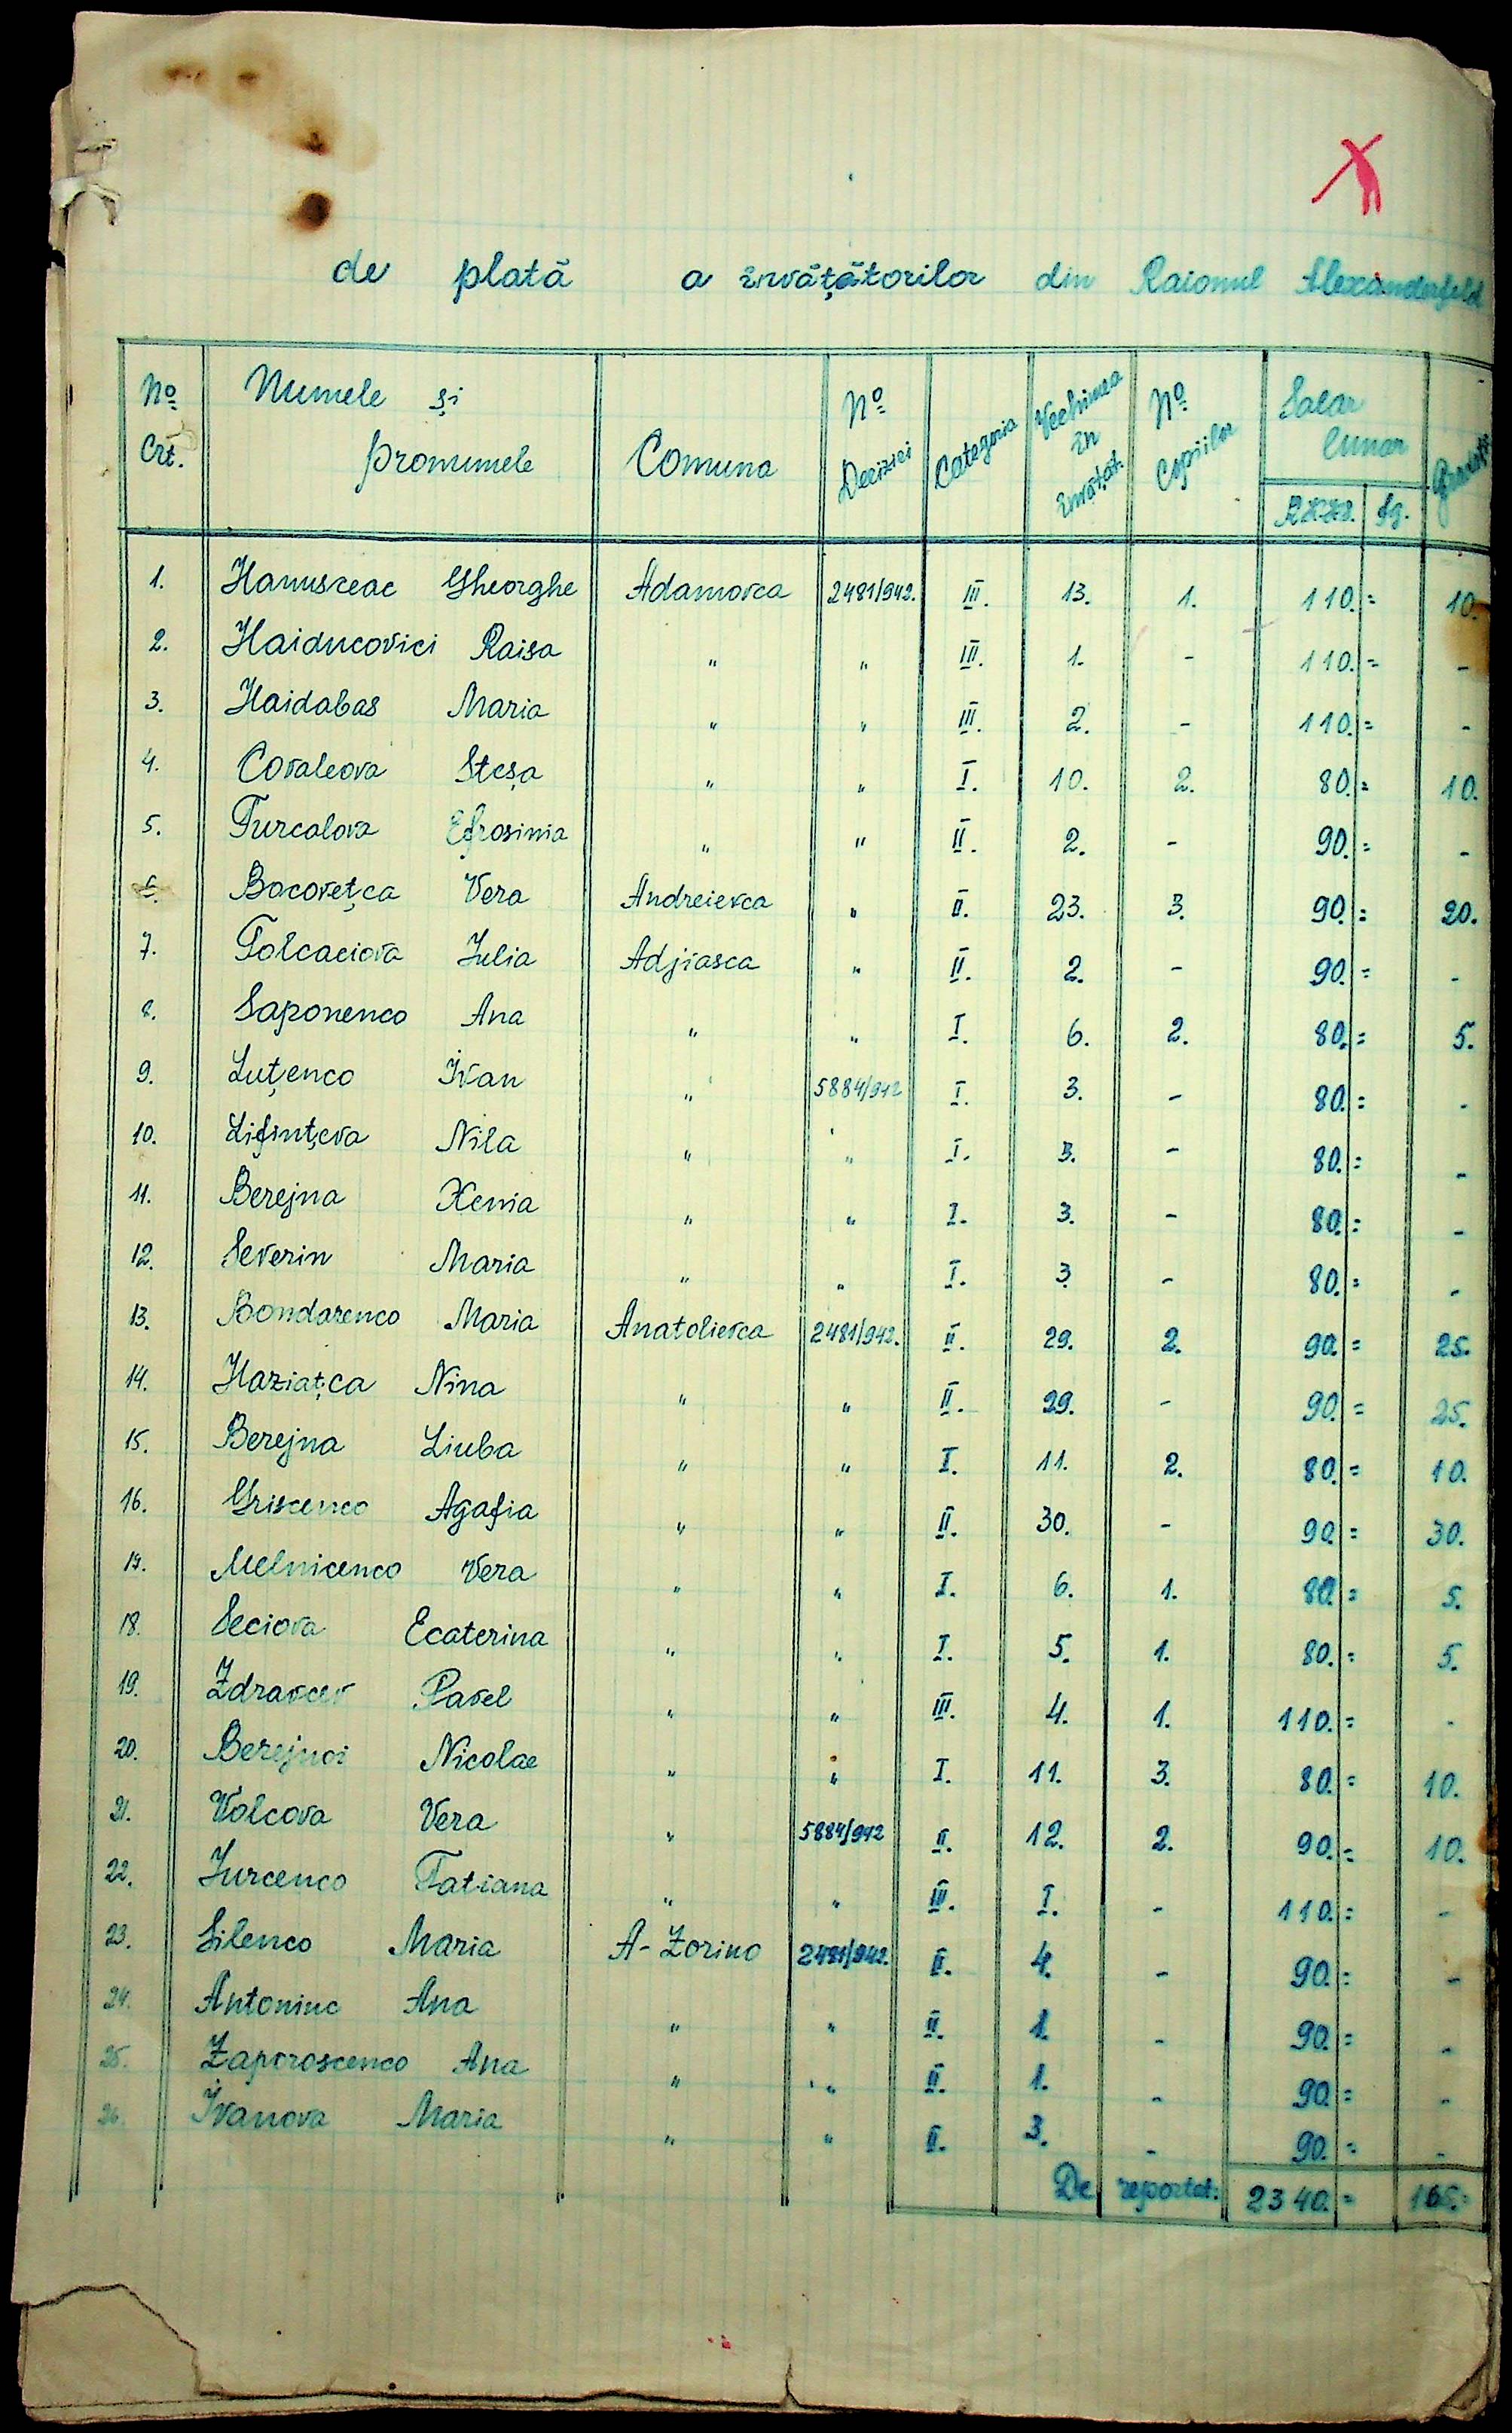 de plată a învățătorilor din Raionul Alexanderfeld
No Crt. Numele și pronumele Comuna No Deciziei Categoria Vechimea în învățăt. No Copiilor Salar lunar RKKS. fg.
1. Hanusceac Gheorghe Adamovca 2481/942. III. 13. 1. 110.= 10.
2. Haiducovici Raisa " " III. 1. - 110.= -
3. Haidabas Maria " " III. 2. - 110.= -
4. Covaleova Steșa " " I. 10. 2. 80.= 10.
5. Turcalova Efrosinia " " II. 2. - 90.= -
6. Bocovețca Vera Andreievca " II. 23. 3. 90.= 20.
7. Tolcaciova Iulia Adjiasca " II. 2. - 90.= -
8. Saponenco Ana " " I. 6. 2. 80.= 5.
9. Luțenco Ivan " 5884/942 I. 3. - 80.= -
10. Lifințeva Nila " " I. 3. - 80.= -
11. Berejna Xenia " " I. 3. - 80.= -
12. Severin Maria " " I. 3 - 80.= -
13. Bondarenco Maria Anatolievca 2481/942. II. 29. 2. 90.= 25.
14. Haziațca Nina " " II. 29. - 90.= 25.
15. Berejna Liuba " " I. 11. 2. 80.= 10.
16. Griscenco Agafia " " II. 30. - 90.= 30.
17. Melnicenco Vera " " I. 6. 1. 80.= 5.
18. Seciova Ecaterina " " I. 5. 1. 80.= 5.
19. Zdravcev Pavel " " III. 4. 1. 110.= -
20. Berejnoi Nicolae " " I. 11. 3. 80.= 10.
21. Volcova Vera " 5884/942 II. 12. 2. 90.= 10.
22. Iurcenco Tatiana " " III. I. - 110.= -
23. Silenco Maria A-Zorino 2481/942. II. 4. - 90.= -
24. Antoniuc Ana " " II. 1. - 90.= -
25. Zaporoscenco Ana " " II. 1. - 90.= -
26. Ivanova Maria " " II. 3. - 90.= -
De reportat: 2340.= 165.=